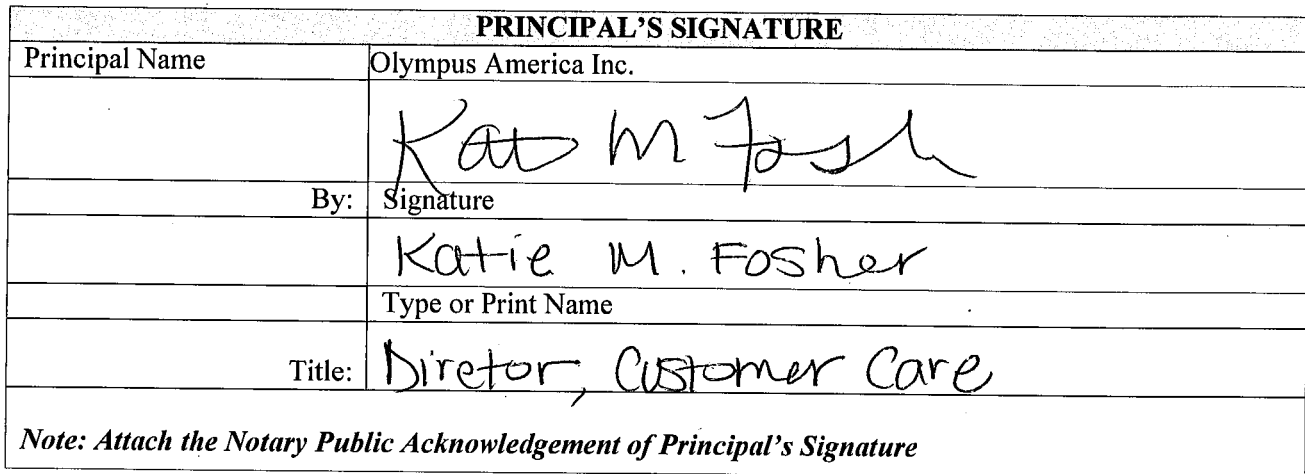 PRINCIPAL'S SIGNATURE
Principal Name Olympus America Inc.
Kat M Fosh
By: Signature
Katie M. Fosher
Type or Print Name
Title: Diretor, Customer Care
Note: Attach the Notary Public Acknowledgement of Principal's Signature